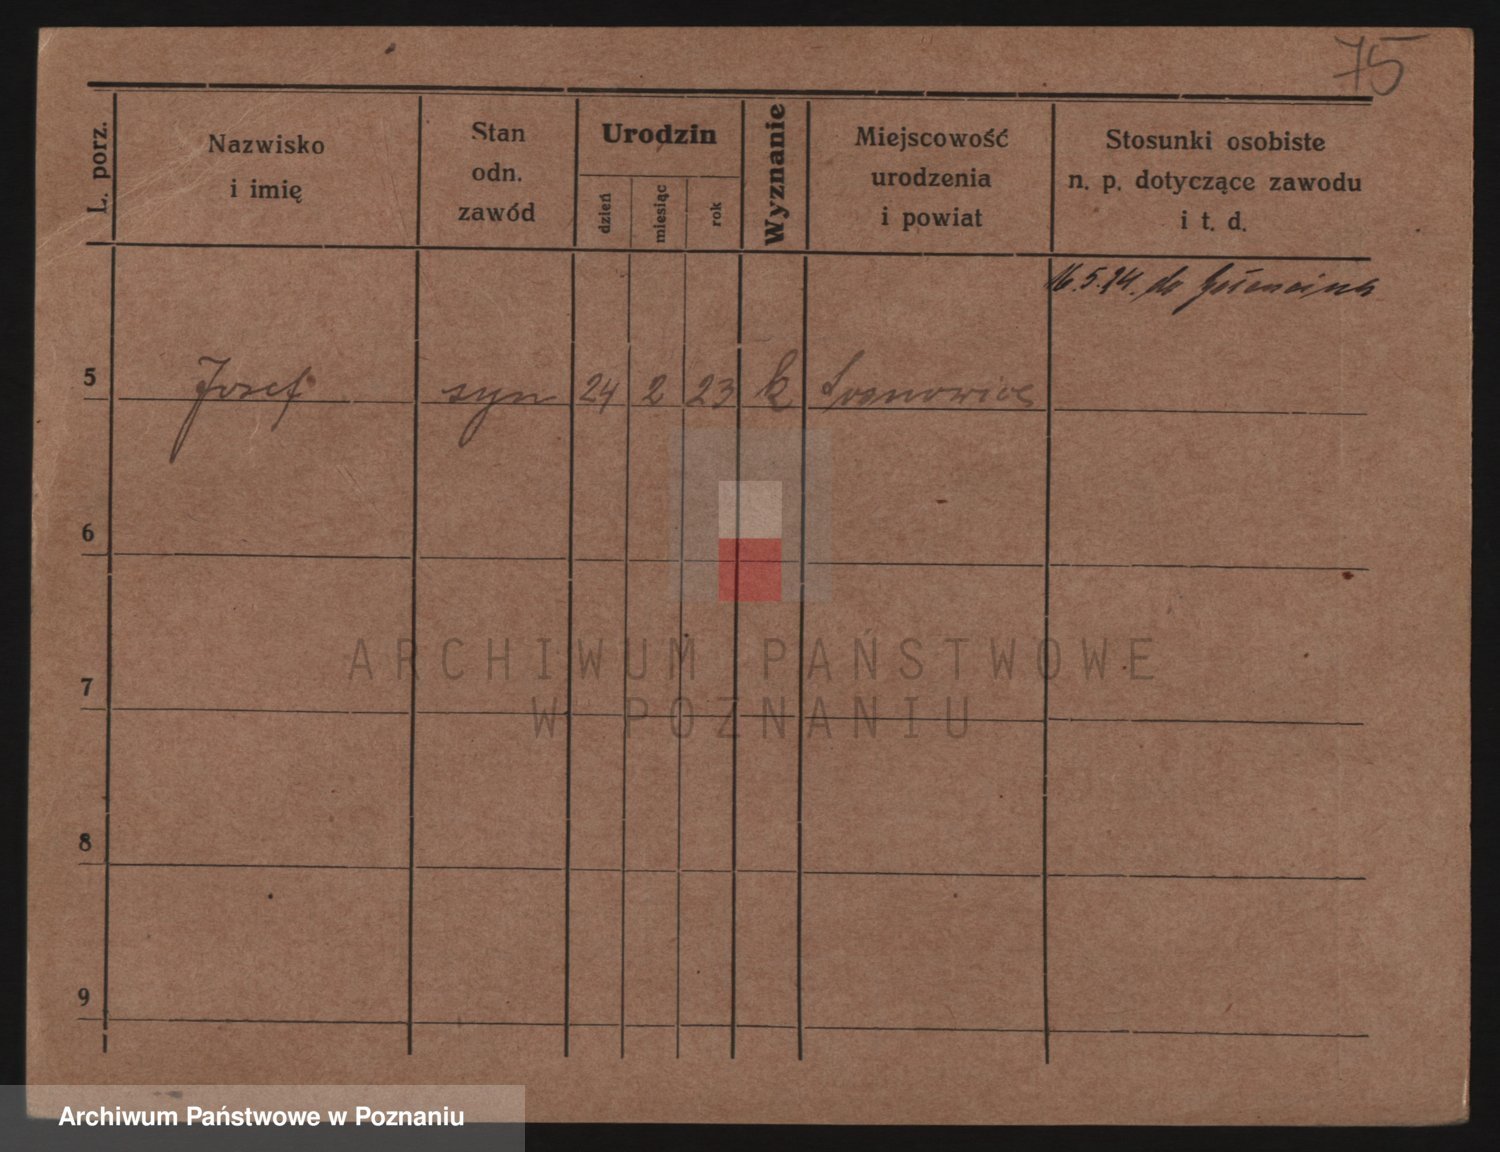 75
L. porz.
Nazwisko
i imię
Stan
odn.
zawód
Urodzin
dzień
miesiąc
rok
Wyznanie
Miejscowość
urodzenia
i powiat
Stosunki osobiste
n. p. dotyczące zawodu
i t. d.
16.5.24. do
5 Josef syn 24 2 23 k
6
7
8
9
ARCHIWUM PAŃSTWOWE
W POZNANIU
Archiwum Państwowe w Poznaniu